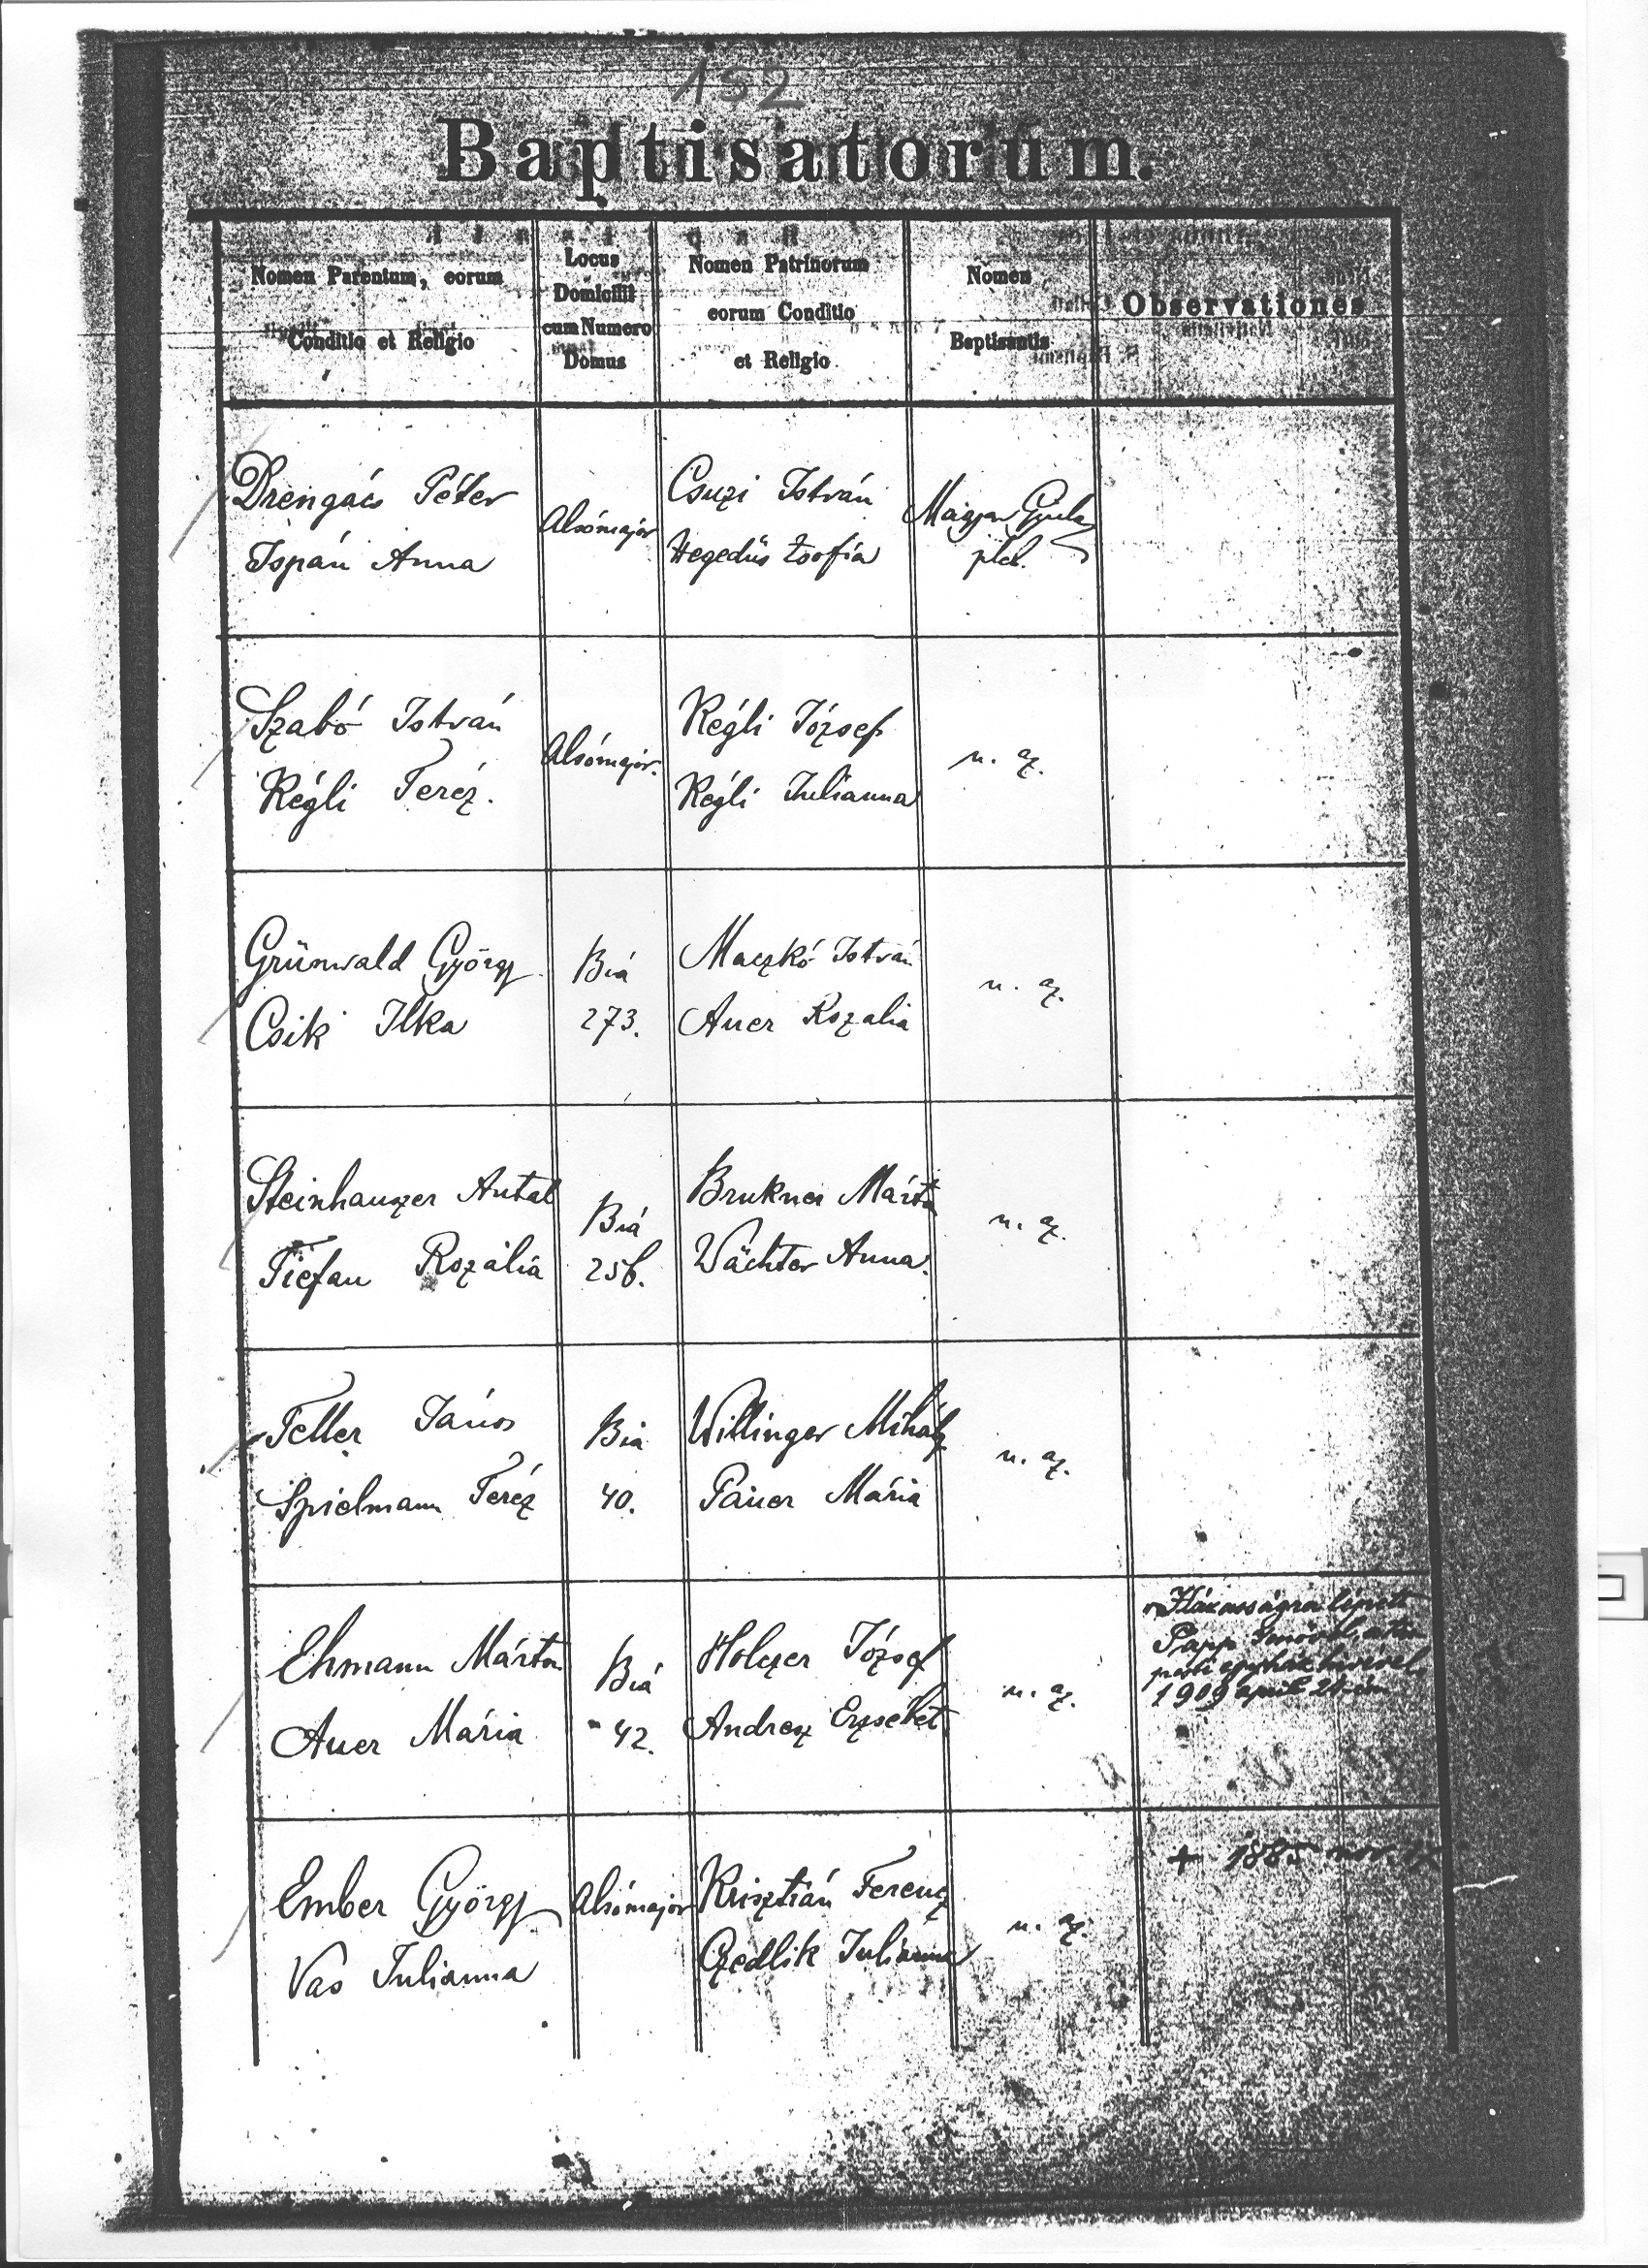 152
Baptisatorum.
Nomen Parentum, eorum
Conditio et Religio
Locus
Domicilii
cum Numero
Domus
Nomen Patrinorum
eorum Conditio
et Religio
Nomen
Baptisantis
Observationes
Drengács Péter
Ispán Anna
Alsómajor
Csuzi István
Hegedüs Zsofia
Magyar Gyula
pleb.
Szabó István
Régli Teréz.
Alsómajor.
Régli József
Régli Julianna
u. az.
Grünwald György
Csik Ilka
Biá
273.
Maczkó István
Auer Rozalia
u. az.
Steinhauzer Antal
Tiefau Rozália
Biá
256.
Brukner Márta
Wächter Anna.
u. az.
Feller János
Spielmann Teréz
Biá
40.
Willinger Mihály
Páuer Mária
u. az.
Ehmann Márton
Auer Mária
Biá
42.
Holczer József
Andresz Erzsébet
u. az.
Házasságra lépett
Papp
1909 april 20
Ember György
Vas Julianna
Alsómajor
Krisztián Ferencz
Czedlik Julianna
u. az.
+ 1885 nov.